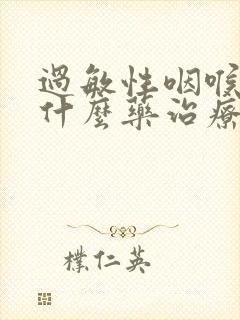 過敏性咽喉
什麼藥治療
樸仁英